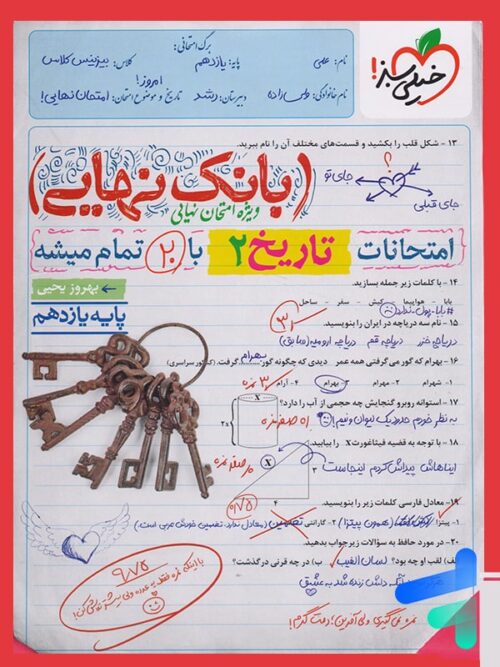 برگ امتحانی:
خیلی سبز!
نام: علی
پایه: یازدهم
کلاس: بیزینس کلاس
نام خانوادگی: ولی‌زاده
دبیرستان: رشد
تاریخ و موضوع امتحان: امروز! امتحان نهایی!
۱۳ - شکل قلب را بکشید و قسمت‌های مختلف آن را نام ببرید.
؟
جای تو
جای قبلی
(بانک نهایی)
ویژه امتحان نهایی
امتحانات تاریخ ۲ با ۲۰ تمام میشه
۱۴ - با کلمات زیر جمله بسازید.
بهروز یحیی
بابا - هواپیما - کیش - سفر - ساحل
#بابا_پول_نداره
۱۵ - نام سه دریاچه در ایران را بنویسید.
پایه یازدهم
دریاچه خزر دریاچه قم دریاچه ارومیه (سابق)
۱۶ - بهرام که گور می‌گرفتی همه عمر دیدی که چگونه گور بهرام گرفت. (کنکور سراسری)
۱- شهرام ۲- مهرام ۳- بهرام ۴- آرام
۱۷ - استوانه روبرو گنجایش چه حجمی از آب را دارد؟
X
2x
به نظر خودم حدود یک لیوان و نیم!
۱۸ - با توجه به قضیه فیثاغورث X را بیابید.
X
۳
۴
ایناهاش پیداش کردم اینجاست
۱۹ - معادل فارسی کلمات زیر را بنویسید.
۱- پیتزا (همون پیتزا) ۲- گارانتی تضمین (معادل ندارد. تضمین خودش عربی است.)
۲۰- در مورد حافظ به سؤالات زیر جواب بدهید.
الف) لقب او چه بود؟ لسان الغیب ب) در چه قرنی درگذشت؟
هرگز نمیرد آنکه دلش زنده شد به عشق
۹/۷۵